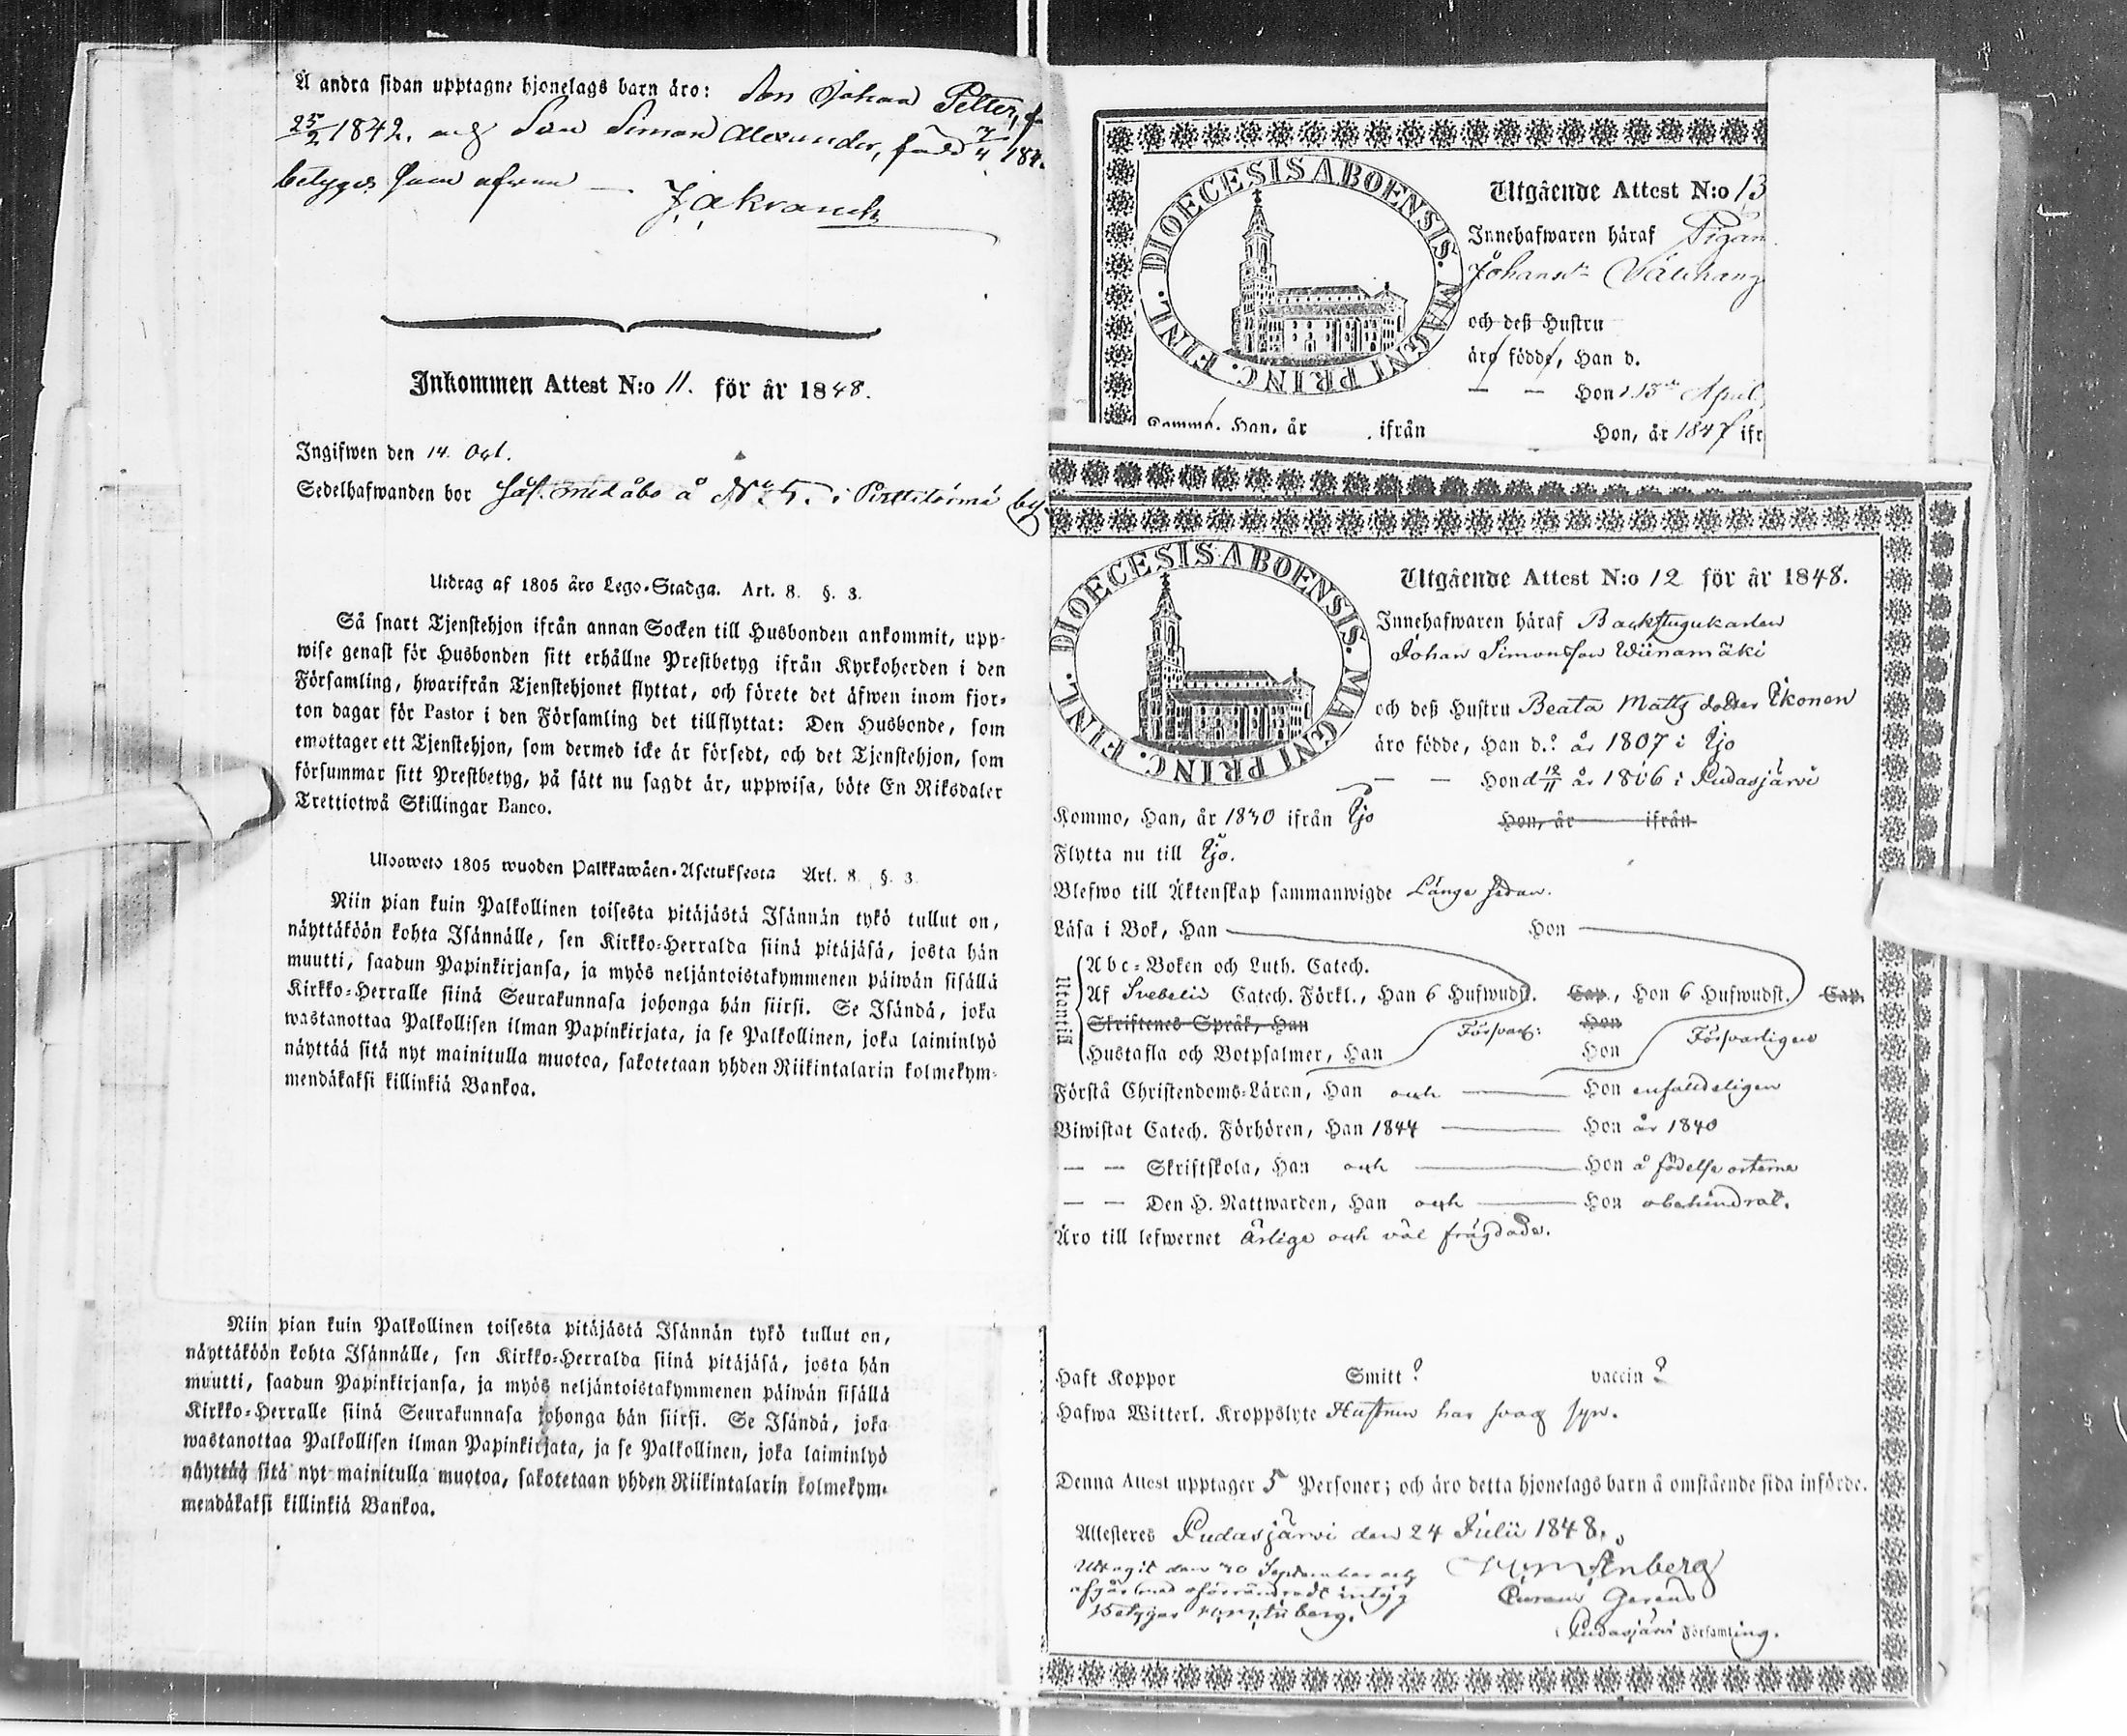 Å andra sidan upptagne hjonelags barn äro: Son Johan Petter, f
25/2 1842. och Son Simon Alexander, född 7/4 184
betygar som ofwan — J. A. Krank

Inkommen Attest N:o 11. för år 1848.
Ingifwen den 14 Oct.
Sedelhafwanden bor sås. med åbo å No 5. i Pirttitörmä by
Utdrag af 1805 års Lego-Stadga. Art. 8. §. 3.
Så snart Tjenstehjon ifrån annan Socken till Husbonden ankommit, upp-
wise genast för Husbonden sitt erhållne Prestbetyg ifrån Kyrkoherden i den
Församling, hwarifrån Tjenstehjonet flyttat, och förete det äfwen inom fjor-
ton dagar för Pastor i den Församling det tillflyttat: Den Husbonde, som
emottager ett Tjenstehjon, som dermed icke är försedt, och det Tjenstehjon, som
försummar sitt Prestbetyg, på sätt nu sagdt är, uppwisa, böte En Riksdaler
Trettiotwå Skillingar Banco.
Ulosweto 1805 wuoden Palkkawäen-Asetuksesta Art. 8. §. 3.
Niin pian kuin Palkollinen toisesta pitäjästä Isännän tykö tullut on,
näyttäköön kohta Isännälle, sen Kirkko-Herralda siinä pitäjäsä, josta hän
muutti, saadun Papinkirjansa, ja myös neljäntoistakymmenen päiwän sisällä
Kirkko-Herralle siinä Seurakunnasa johonga hän siirsi. Se Isändä, joka
wastanottaa Palkollisen ilman Papinkirjata, ja se Palkollinen, joka laiminlyö
näyttää sitä nyt mainitulla muotoa, sakotetaan yhden Riikintalarin kolmekym-
mendäkaksi killinkiä Bankoa.
Niin pian kuin Palkollinen toisesta pitäjästä Isännän tykö tullut on,
näyttäköön kohta Isännälle, sen Kirkko-Herralda siinä pitäjäsä, josta hän
muutti, saadun Papinkirjansa, ja myös neljäntoistakymmenen päiwän sisällä
Kirkko-Herralle siinä Seurakunnasa johonga hän siirsi. Se Isändä, joka
wastanottaa Palkollisen ilman Papinkirjata, ja se Palkollinen, joka laiminlyö
näyttää sitä nyt mainitulla muotoa, sakotetaan yhden Riikintalarin kolmekym-
mendäkaksi killinkiä Bankoa.
DIOECESIS ABOENSIS. MAGNI PRINC. FINL.
Utgående Attest N:o 13
Innehafwaren häraf Pigan
Johansdr
och deß Hustru
äro födde, Han d.
— — Hon d. 13de April
Kommo, Han, år . ifrån Hon, år 1847 ifr
DIOECESIS ABOENSIS. MAGNI PRINC. FINL.
Utgående Attest N:o 12 för år 1848.
Innehafwaren häraf Backstugukarlen
Johan Simonsson Wiinamäki
och deß Hustru Beata Matts dotter Ikonen
äro födde, Han d. ? år 1807 i Ijo
— — Hon d 12/11 år 1806 i Pudasjärvi
Kommo, Han, år 1840 ifrån Ijo Hon, år ifrån
Flytta nu till Ijo.
Blefwo till Äktenskap sammanwigde Länge sedan.
Läsa i Bok, Han Hon
Utantill
Abc-Boken och Luth. Catech.
Af Svebelii Catech. Förkl., Han 6 Hufwudst. Cap., Hon 6 Hufwudst. Cap.
Skriftenes Språk, Han Försvarl: Hon Försvarligen
Hustafla och Botpsalmer, Han Hon
Förstå Christendoms-Läran, Han och — Hon enfaldeligen
Biwistat Catech. Förhören, Han 1844 — Hon år 1840
— — Skriftskola, Han och — Hon å födelse orterna
— — Den H. Nattwarden, Han och — Hon obehindrat.
Äro till lefwernet ärlige och väl frägdade.
Haft Koppor Smitt ? vaccin ?
Hafwa Witterl. Kroppslyte Hustrun har svag syn.
Denna Attest upptager 5 Personer; och äro detta hjonelags barn å omstående sida införde.
Attesteres Pudasjärvi den 24 Julii 1848.
Uttagit den 30 September och
afgår med oförändradt intyg
Betygar
Curam Gerens
Pudasjärvi Församling.